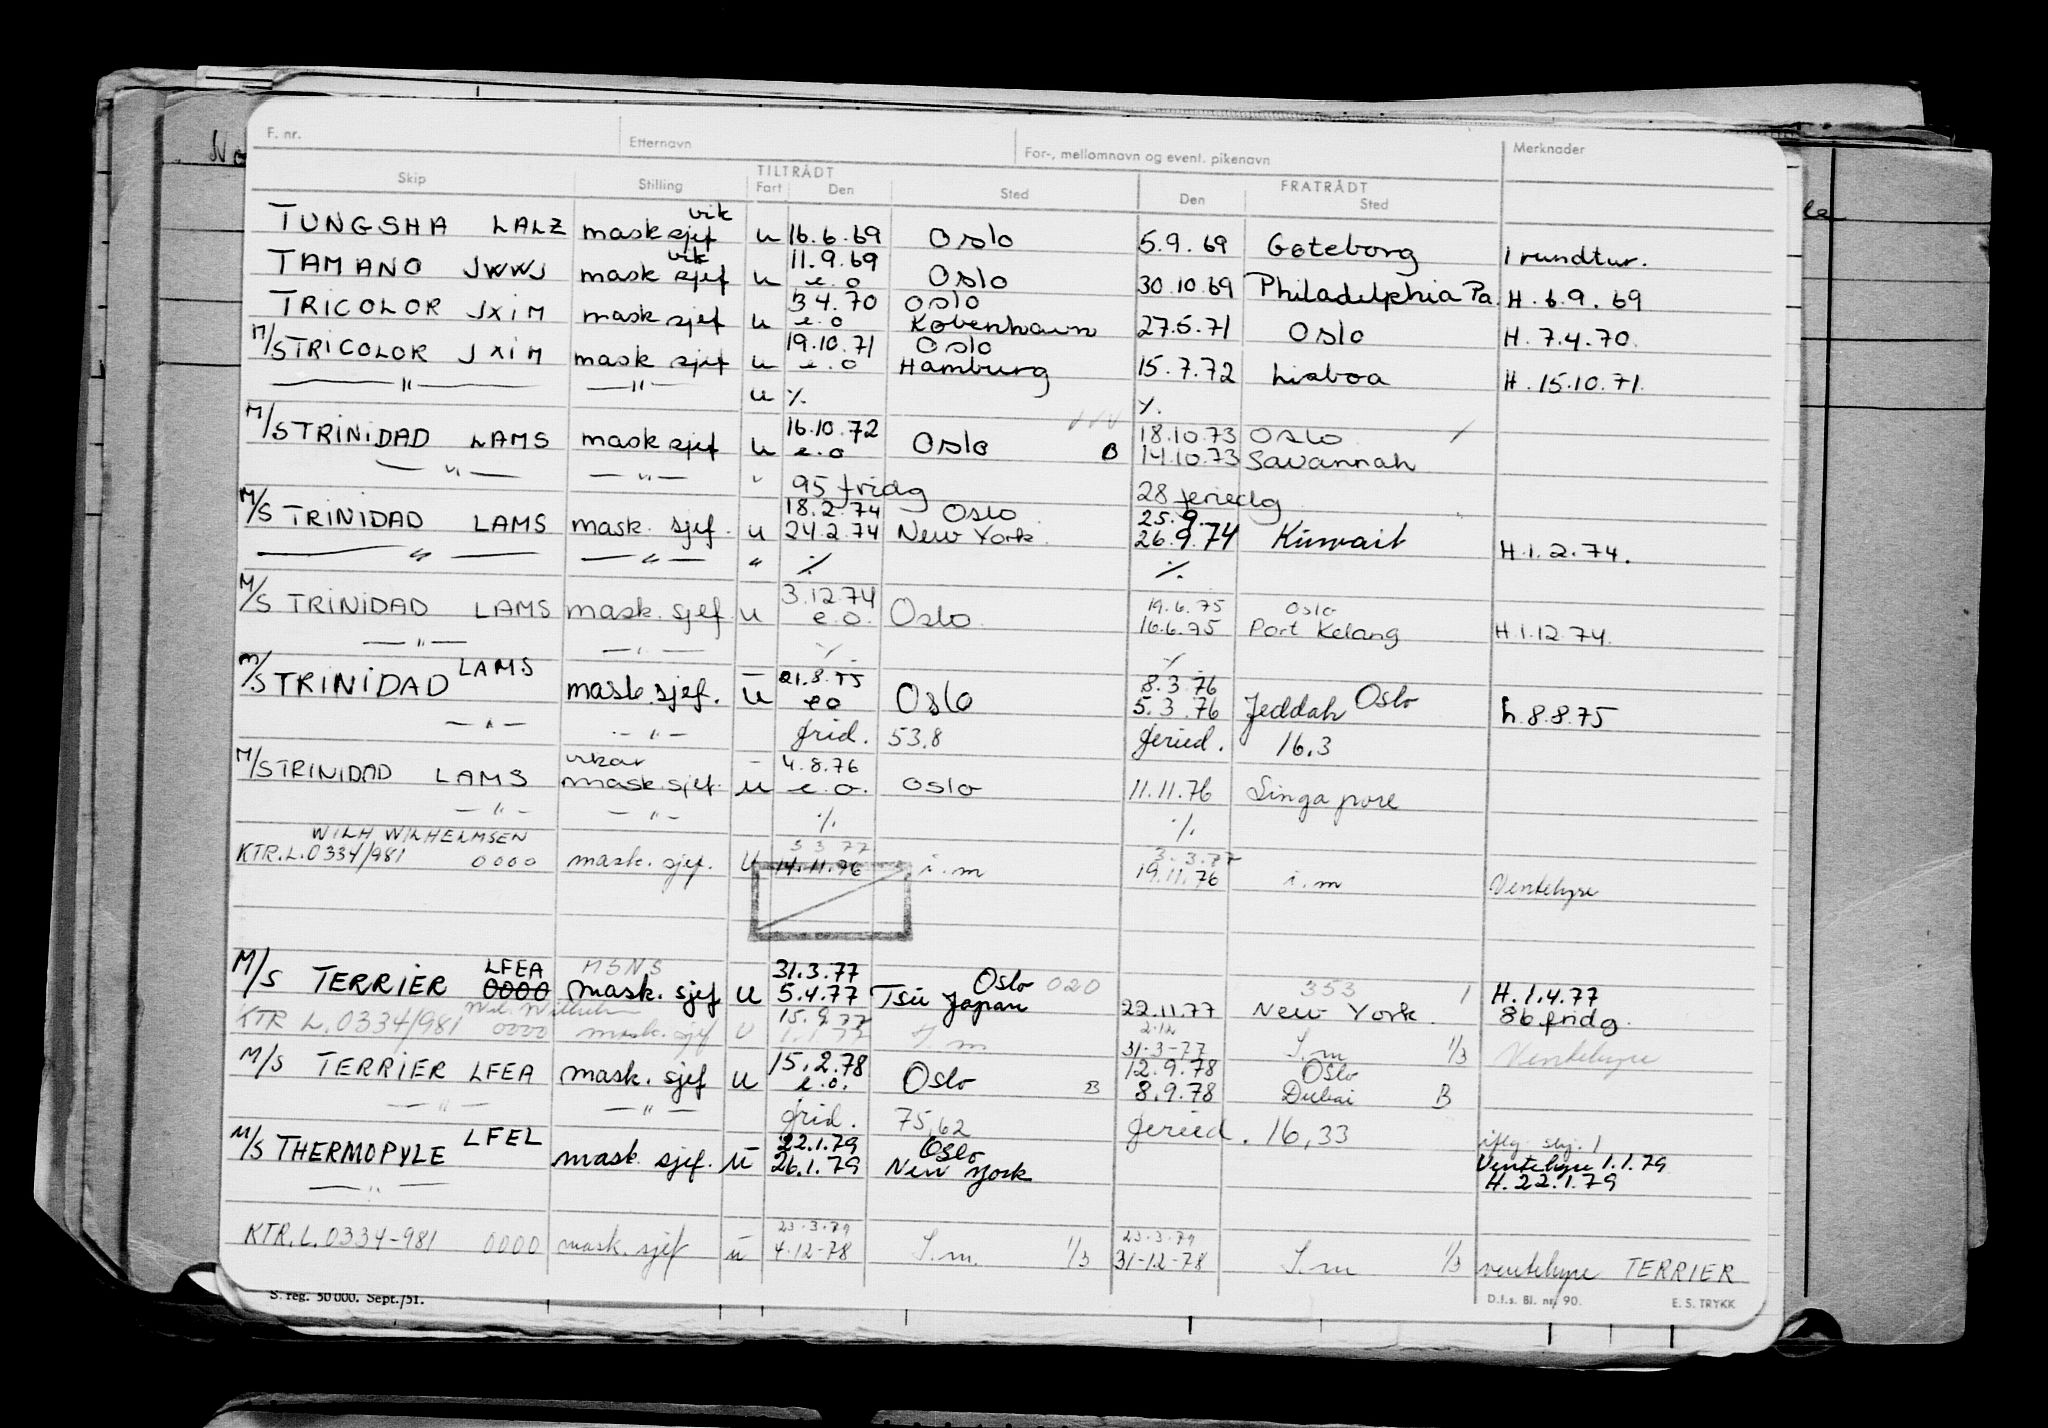 F. nr. Etternavn For-, mellomnavn og event. pikenavn Merknader
TILTRÅDT FRATRÅDT
Skip Stilling Fart Den Sted Den Sted
vik
TUNGSHA LALZ mask sjef u 16.6.69 Oslo 5.9.69 Gøteborg 1 rundtur.
vik 11.9.69
TAMANO JWWJ mask sjef u e.o Oslo 30.10.69 Philadelphia Pa. H. 6.9.69
3.4.70 Oslo
TRICOLOR JXIM mask sjef u e.o København 27.5.71 Oslo H. 7.4.70.
19.10.71 Oslo
M/S TRICOLOR JXIM mask sjef u e.o Hamburg 15.7.72 Lisboa H. 15.10.71.
— " — — " — u ·/. ·/.
16.10.72 18.10.73 Oslo
M/S TRINIDAD LAMS mask sjef u e.o Oslo B 14.10.73 Savannah
— " — — " — " 95 fridg 28 feriedg
18.2.74 Oslo 25.9.
M/S TRINIDAD LAMS mask. sjef. u 24.2.74 New York. 26.9.74 Kuwait H.1.2.74.
— " — — " — " ·/. ·/.
3.12.74 19.6.75 Oslo
M/S TRINIDAD LAMS mask. sjef. u e.o. Oslo. 16.6.75 Port Kelang H.1.12.74.
— " — — " — ·/. ·/.
LAMS 21.8.75 8.3.76 Oslo
M/S TRINIDAD mask. sjef. u eo Oslo 5.3.76 Jeddah h.8.8.75
— " — — " — frid. 53.8 feried. 16.3
vikar 4.8.76
M/S TRINIDAD LAMS mask. sjef. u e.o. Oslo 11.11.76 Singapore
— " — — " — ·/. ·/.
WILH WILHELMSEN 3.3.77 3.3.77
KTR.L.0334/981 0000 mask. sjef. u 14.11.76 i.m 19.11.76 i.m Ventehyre
LFEA MSNS 31.3.77 Oslo 020 353 1 H.1.4.77
M/S TERRIER 0000 mask. sjef u 5.4.77 Tsu Japan 22.11.77 New York. 86 fridg.
15.9.77 2.12
KTR L.0334/981 0000 mask. sjef u 1.1.77 i.m 31-3-77 I.m 1/3 Ventehyre
15.2.78 12.9.78 Oslo
M/S TERRIER LFEA mask. sjef u e.o. Oslo B 8.9.78 Dubai B
— " — — " — frid. 75,62 feried. 16,33
LFEL 22.1.79 Oslo iflg. skj. 1
M/S THERMOPYLE mask. sjef. u 26.1.79 New York Ventehyre 1.1.79
— " — H.22.1.79
23.3.79 23.3.79
KTR.L.0334-981 0000 mask. sjef u 4.12-78 I.m. 1/3 31-12-78 I.m 1/3 ventehyre TERRIER
S. reg. 50 000. Sept./51. D.f.s. Bl. nr. 90. E. S. TRYKK